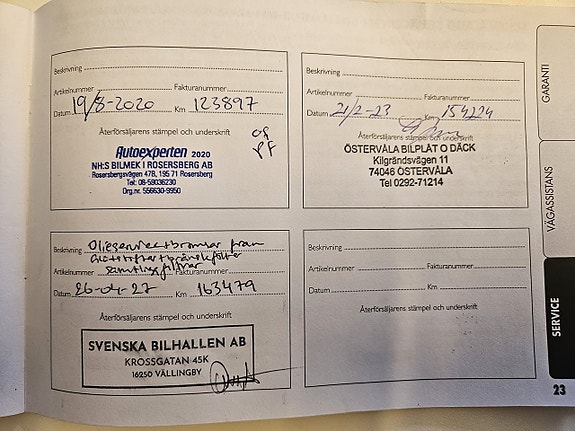 Beskrivning
Artikelnummer Fakturanummer
Datum 19/8-2020 Km 123897
Återförsäljarens stämpel och underskrift
Autoexperten 2020
NH:S BILMEK I ROSERSBERG AB
Rosersbergsvägen 47B, 195 71 Rosersberg
Tel: 08-59036230
Org.nr. 556630-9950
Beskrivning
Artikelnummer Fakturanummer
Datum 21/2-23 Km 154224
Återförsäljarens stämpel och underskrift
ÖSTERVÅLA BILPLÅT O DÄCK
Kilgrändsvägen 11
74046 ÖSTERVÅLA
Tel 0292-71214
Beskrivning
Artikelnummer samtliga filtrer Fakturanummer
Datum 26-04-27 Km 163479
Återförsäljarens stämpel och underskrift
SVENSKA BILHALLEN AB
KROSSGATAN 45K
16250 VÄLLINGBY
Beskrivning
Artikelnummer Fakturanummer
Datum Km
Återförsäljarens stämpel och underskrift
GARANTI
VÄGASSISTANS
SERVICE
23